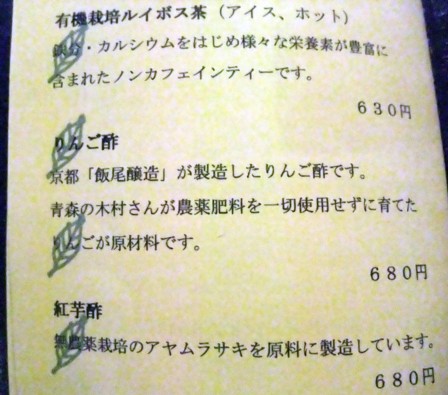 有機栽培ルイボス茶（アイス、ホット）
鉄分・カルシウムをはじめ様々な栄養素が豊富に
含まれたノンカフェインティーです。
630円
りんご酢
京都「飯尾醸造」が製造したりんご酢です。
青森の木村さんが農薬肥料を一切使用せずに育てた
りんごが原材料です。
680円
紅芋酢
無農薬栽培のアヤムラサキを原料に製造しています。
680円